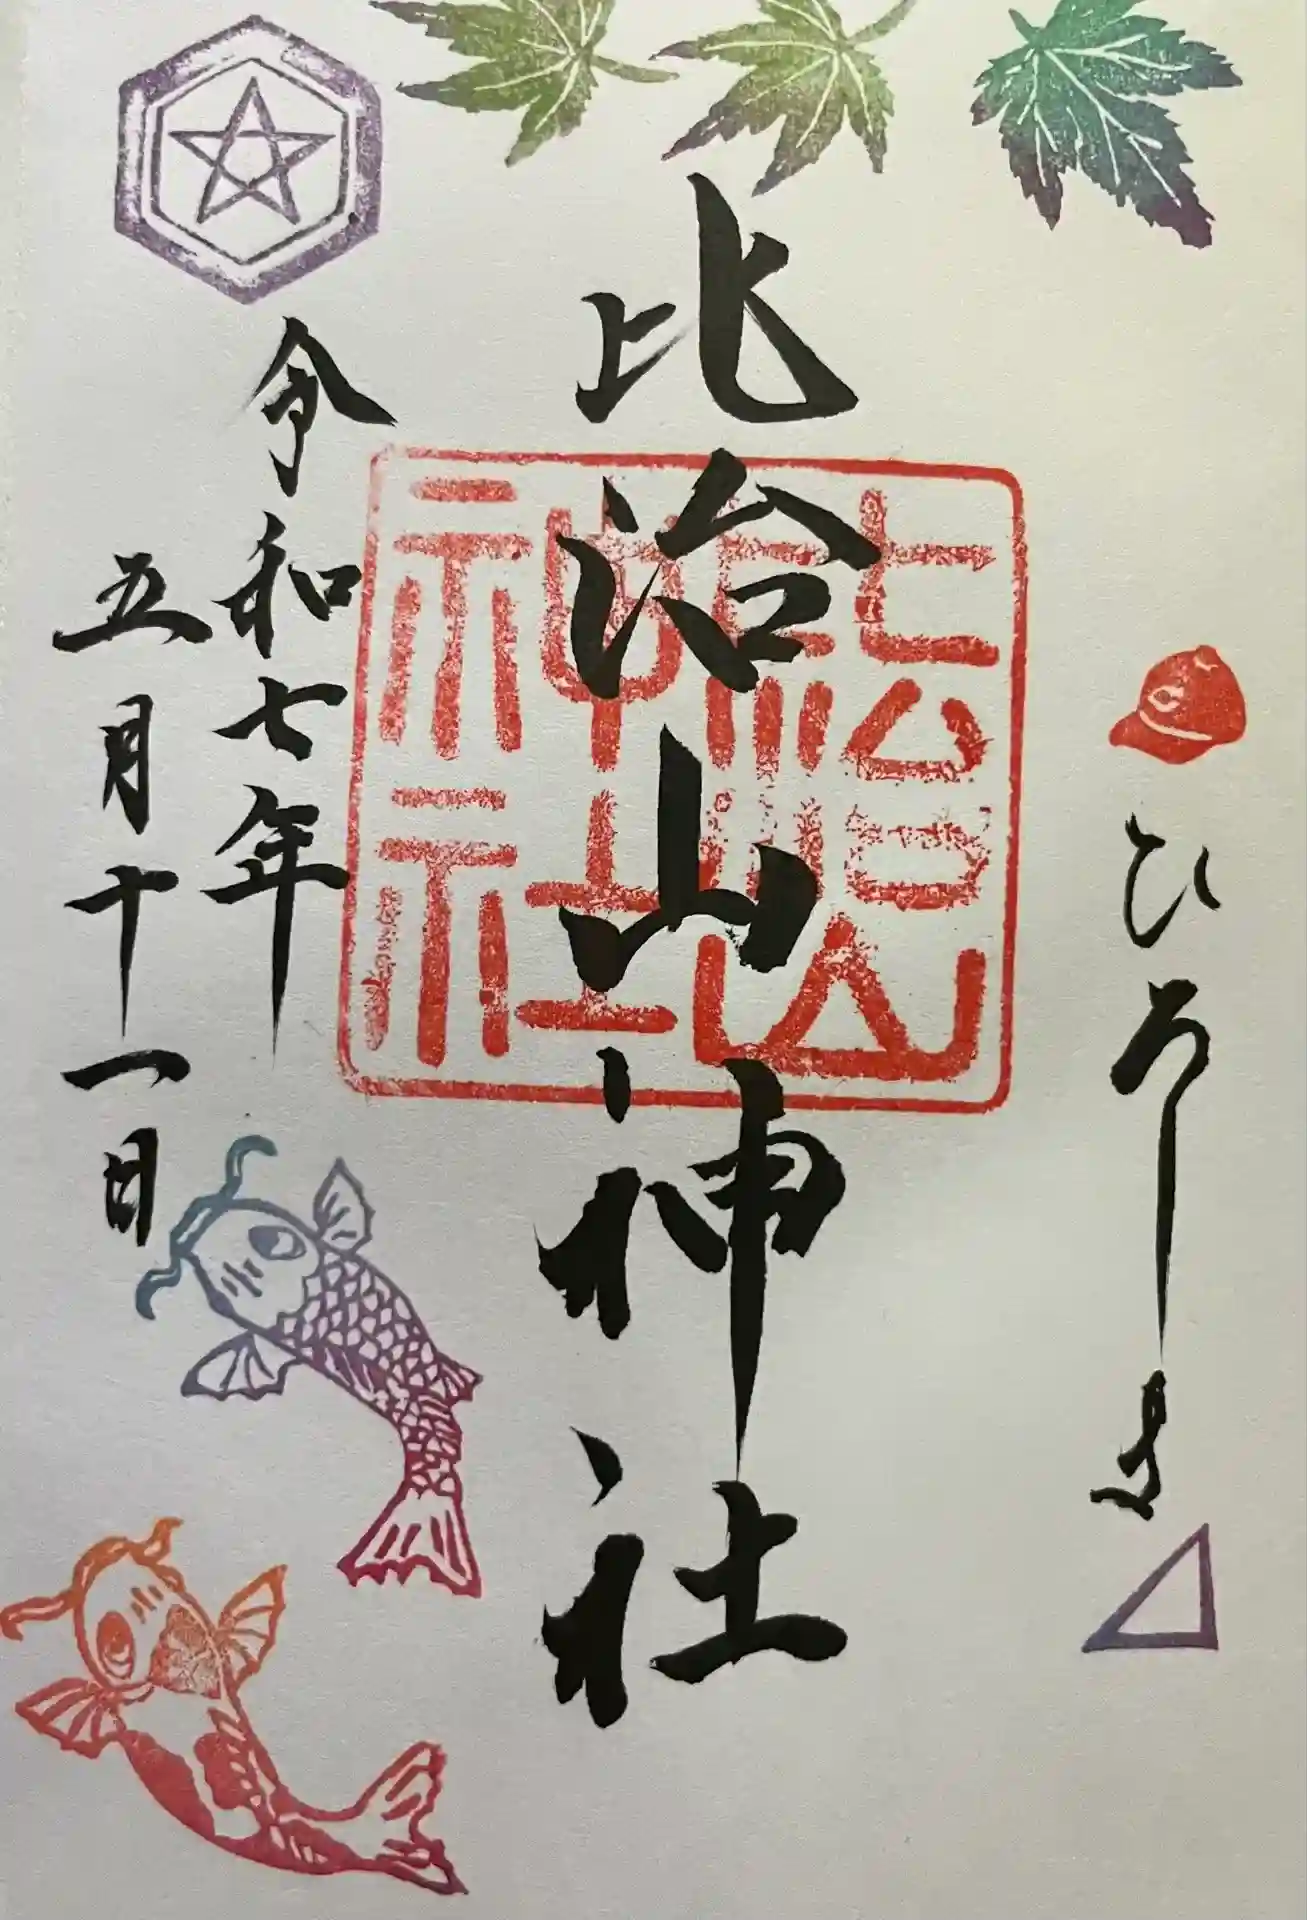 ひろしま
比治山神社
比治山神社
令和七年
五月十一日
C